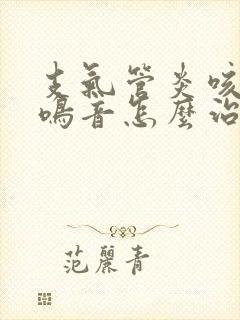 支氣管炎咳
鳴音怎麼治
范麗青